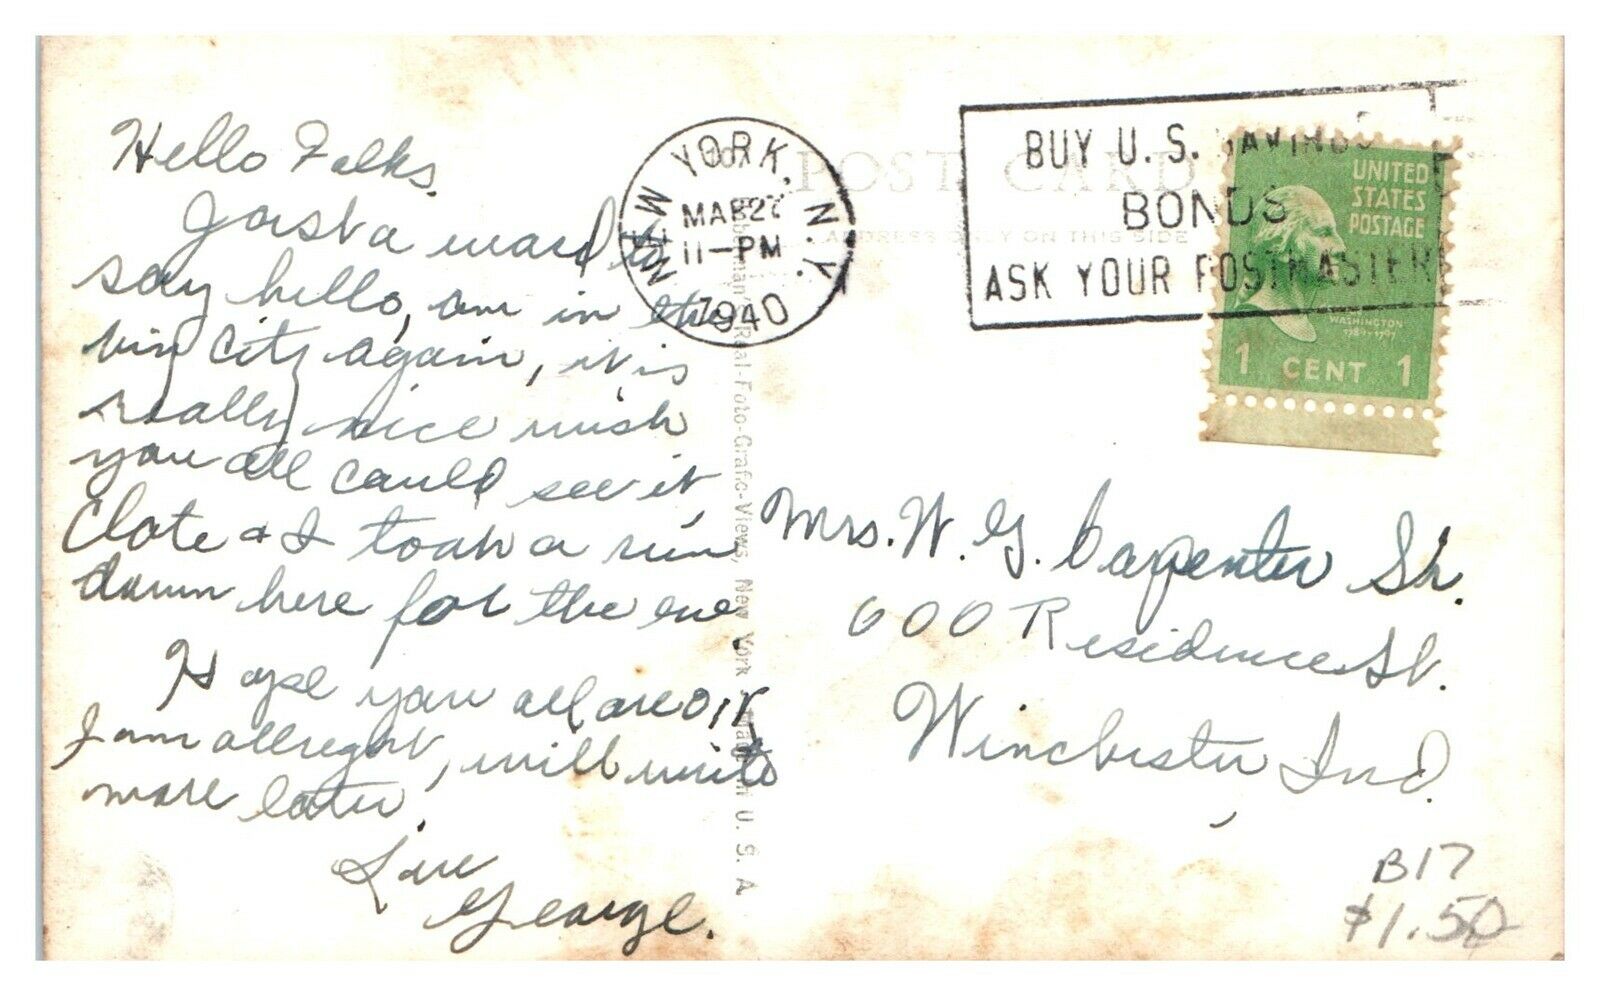 Hello Folks.
Just a word to
say hello, am in the
big City again, it is
really nice wish
you all could see it,
& I took a run
down here for the eve.
Hope you all are O.K,
I am allright, will write
more later.
Love
George.
NEW YORK, N.Y.
MAR 27
11-PM
1940
POST CARD
ADDRESS ONLY ON THIS SIDE
BUY U.S. SAVINGS
BONDS
ASK YOUR POSTMASTER
UNITED
STATES
POSTAGE
WASHINGTON
1789-1797
1 CENT 1
Real-Foto-Grafic-Views, New York - Made in U. S. A
Mrs. W. G. Carpenter Sr.
600 Residence St.
Winchester, Ind.
B17
$1.50